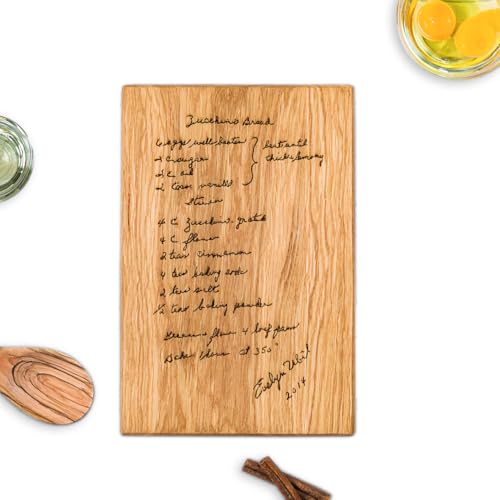 Zucchino Bread
6 eggs well beaten
2 C sugar
2 C oil
2 teas vanilla
beat until
thick & foamy
Stir in
4 C Zucchini grated
4 C flour
2 teas cinnamon
4 teas baking soda
2 tea salt
1/2 teas baking powder
flour 4 loaf pans
Bake 1 hour at 350°
Evelyn
2014